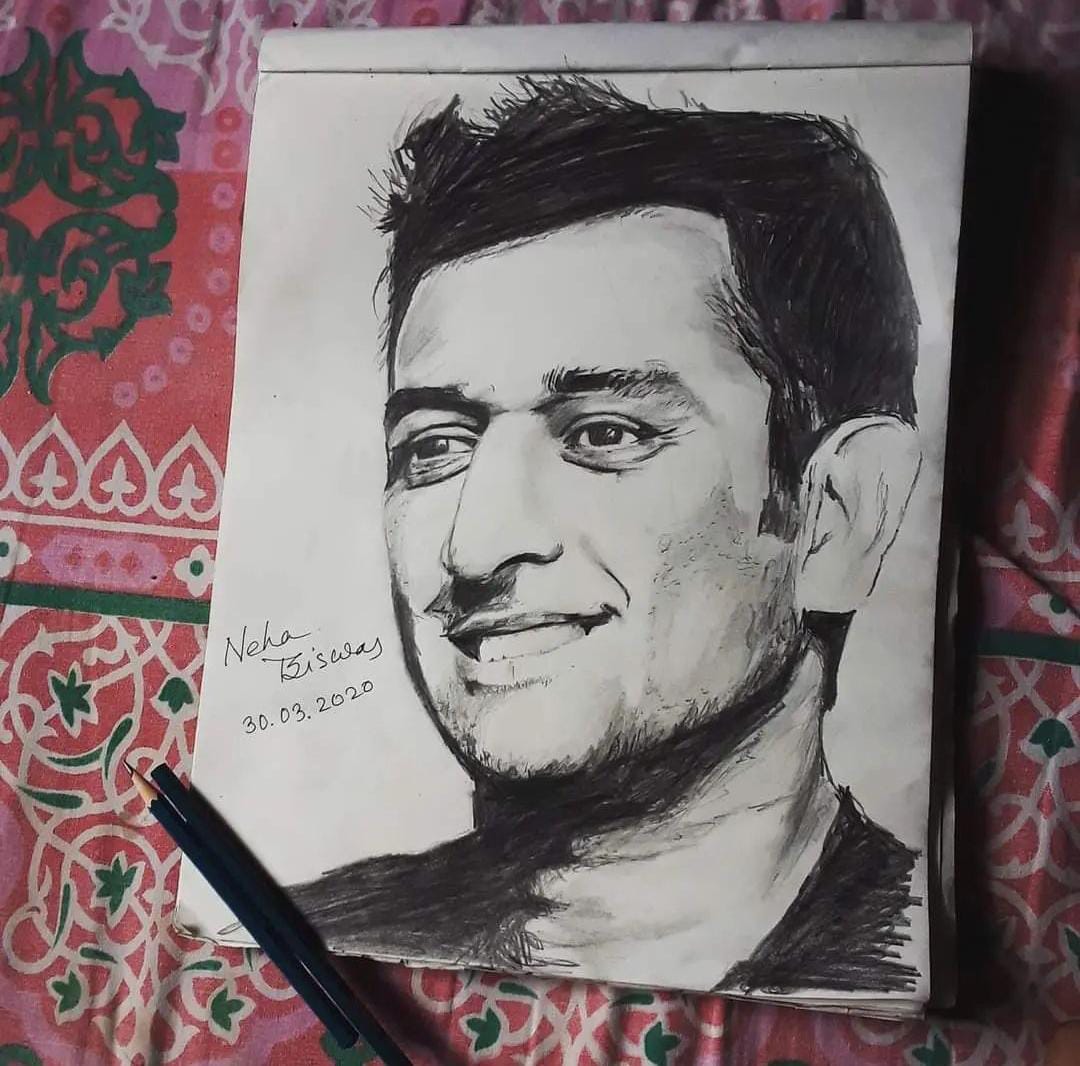 Neha
Biswas
30.03.2020